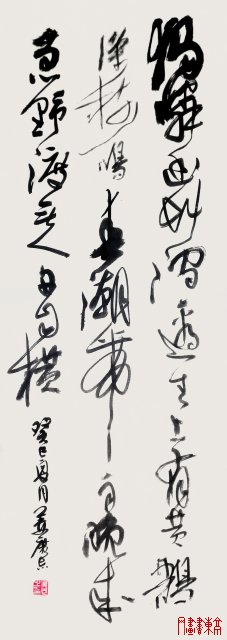 獨憐幽草澗邊生上有黄鸝
深樹鳴春潮帶雨晚來
急野渡無人舟自橫
癸巳夏月